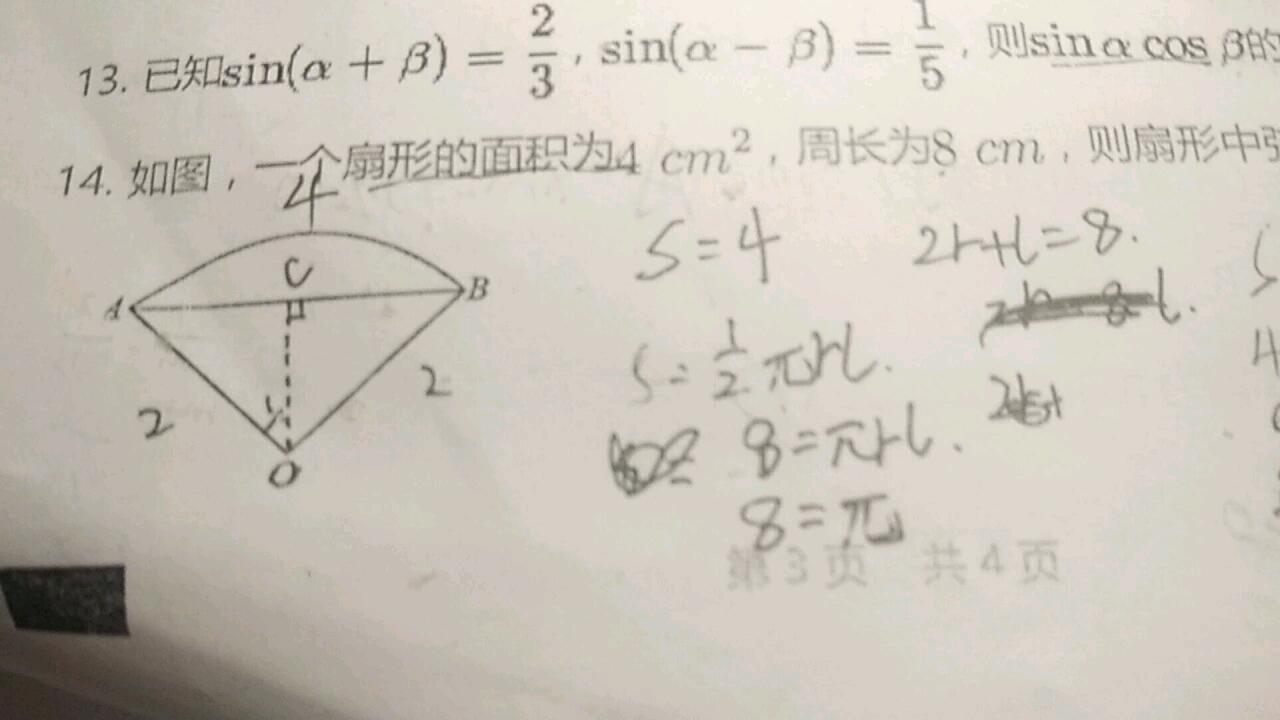 13. 已知sin(α + β) = 2/3, sin(α − β) = 1/5, 则sin α cos β的
14. 如图, 一个扇形的面积为4 cm², 周长为8 cm, 则扇形中
4
C
A
B
2
2
1
O
S=4
2r+l=8.
S=1/2πrl.
8=πrl.
8=π
第 3 页 共 4 页